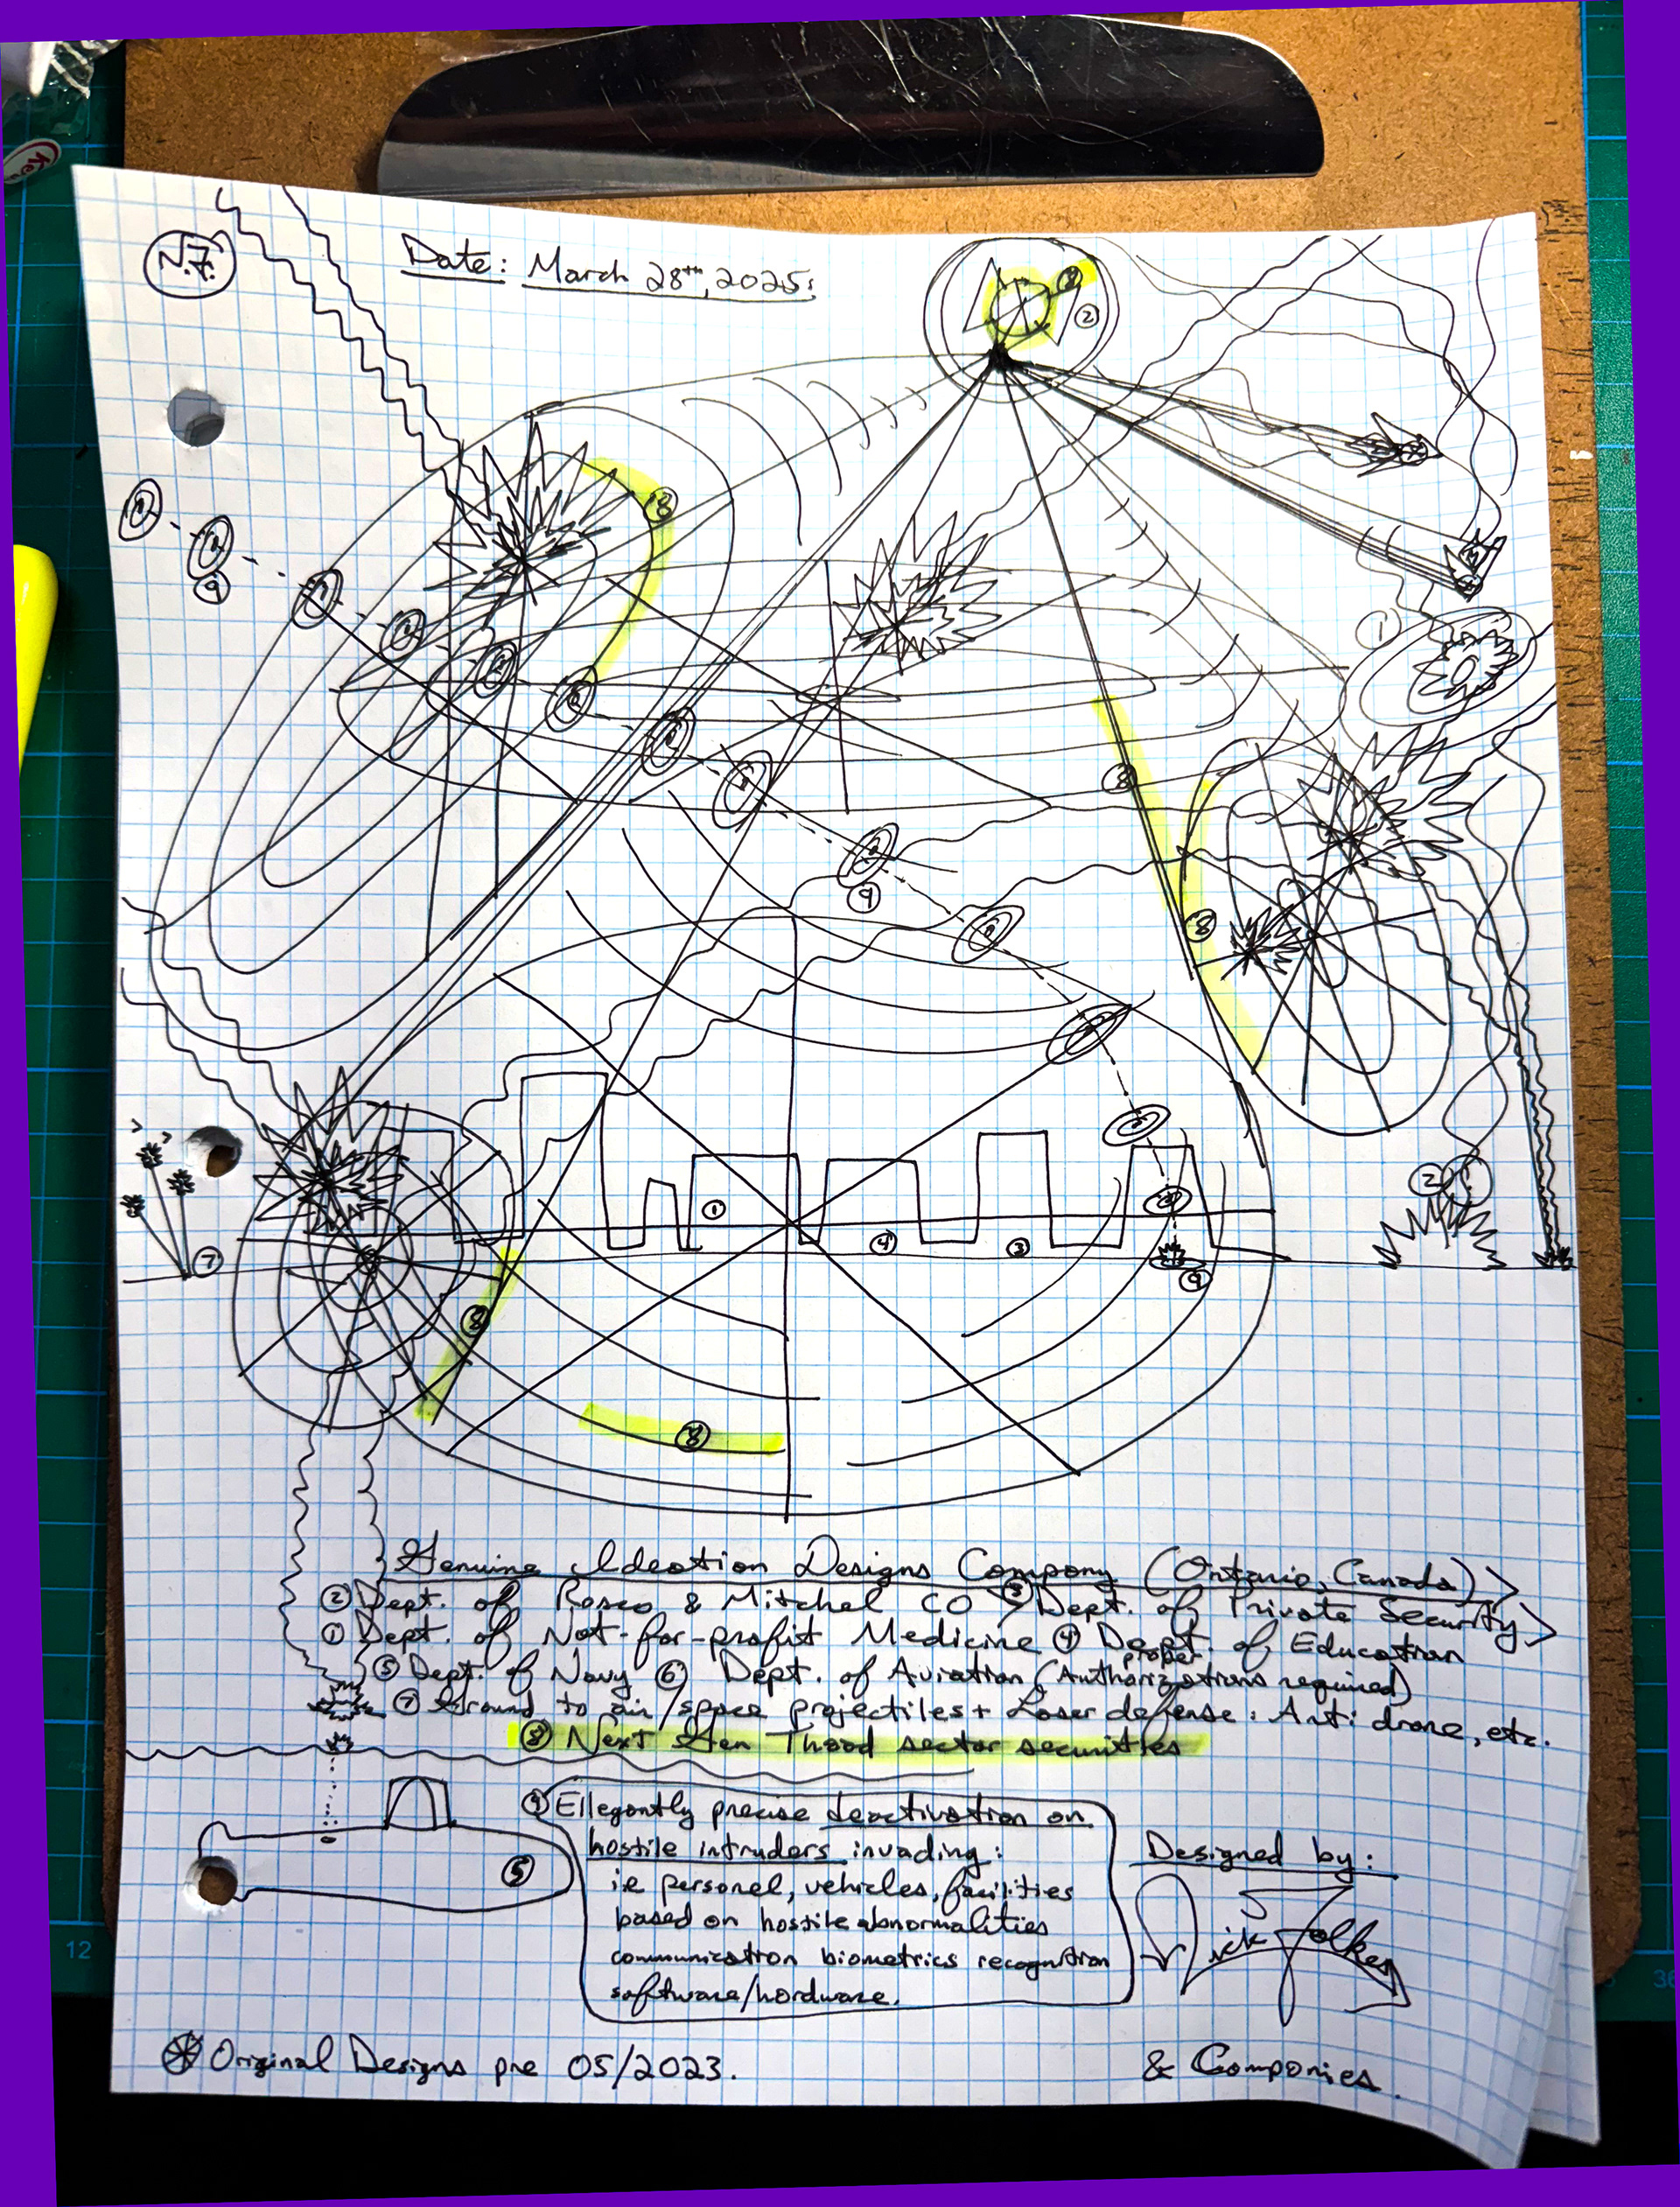 N.F.
Date: March 28th, 2025:
Genuine Ideation Designs Company (Ontario, Canada)>
② Dept. of Rosco & Mitchel CO ③ Dept. of Private Security>
① Dept. of Not-for-profit Medicine ④ Dept. of Education
⑤ Dept. of Navy ⑥ Dept. of Aviation (proper Authorizations required)
⑦ Ground to air/space projectiles + Laser defense: Anti drone, etc.
⑧ Next Gen Thood sector securities
⑨ Ellegantly precise deactivation on
hostile intruders invading:
ie personel, vehicles, facilities
based on hostile abnormalities
communication biometrics recognition
software/hardware.
⑤
Designed by:
Nick Folkes
Original Designs pre 05/2023.
& Companies.
12